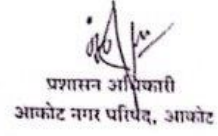 प्रशासन अधिकारी
आकोट नगर परिषद, आकोट